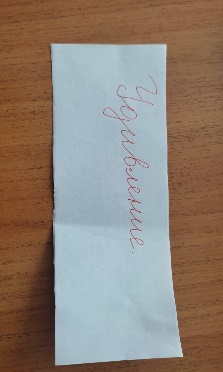 Удивление.